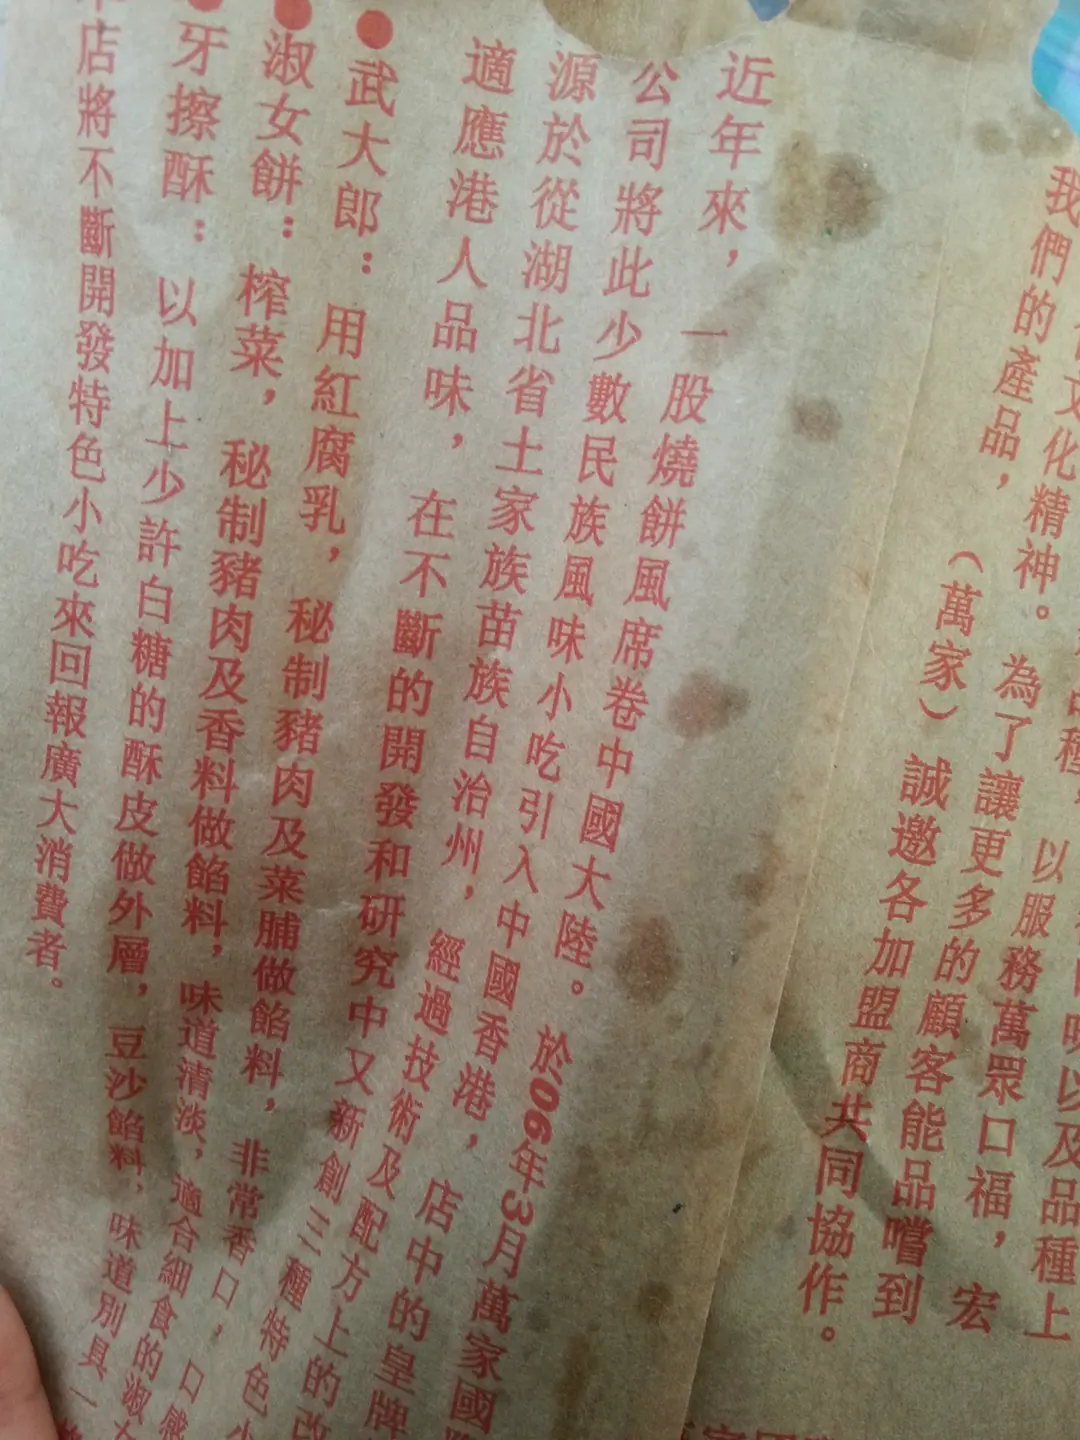 口味以及品種上
種，以服務萬眾口福，宏
文化精神。為了讓更多的顧客能品嚐到
我們的產品，（萬家）誠邀各加盟商共同協作。
近年來，一股燒餅風席卷中國大陸。於06年3月萬家國
公司將此少數民族風味小吃引入中國香港，店中的皇牌
源於從湖北省土家族苗族自治州，經過技術及配方上的改
適應港人品味，在不斷的開發和研究中又新創三種特色小
●武大郎：用紅腐乳，秘制豬肉及菜脯做餡料，非常香口，口感
●淑女餅：榨菜，秘制豬肉及香料做餡料，味道清淡，適合細食的淑
●牙擦酥：以加上少許白糖的酥皮做外層，豆沙餡料，味道別具一
店將不斷開發特色小吃來回報廣大消費者。